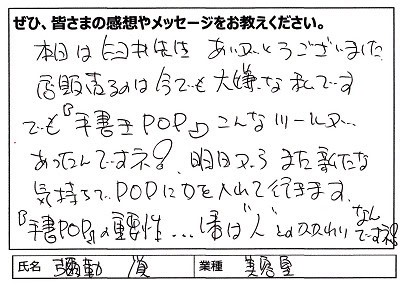 ぜひ、皆さまの感想やメッセージをお教えください。
本日は臼井先生 ありがとうございました
店販売るのは今でも大嫌いな私です
でも『手書きPOP』こんなツールが…
あったんですネ! 明日からまた新たな
気持ちで、POPに力を入れて行きます。
『手書POP』の重要性…帰は"人"との関わり なんですネ!
氏名 彌勒 業種 美容室